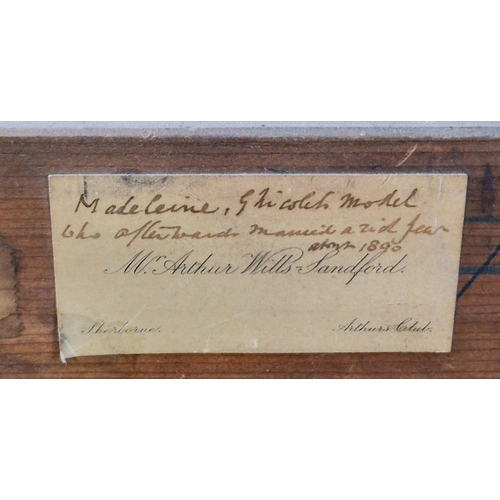 Madeleine, Ghicolet's model
who afterwards married a rich Jew
about 1890
Mr. Arthur Wills-Sandford.
Sherborne.
Arthurs Club.